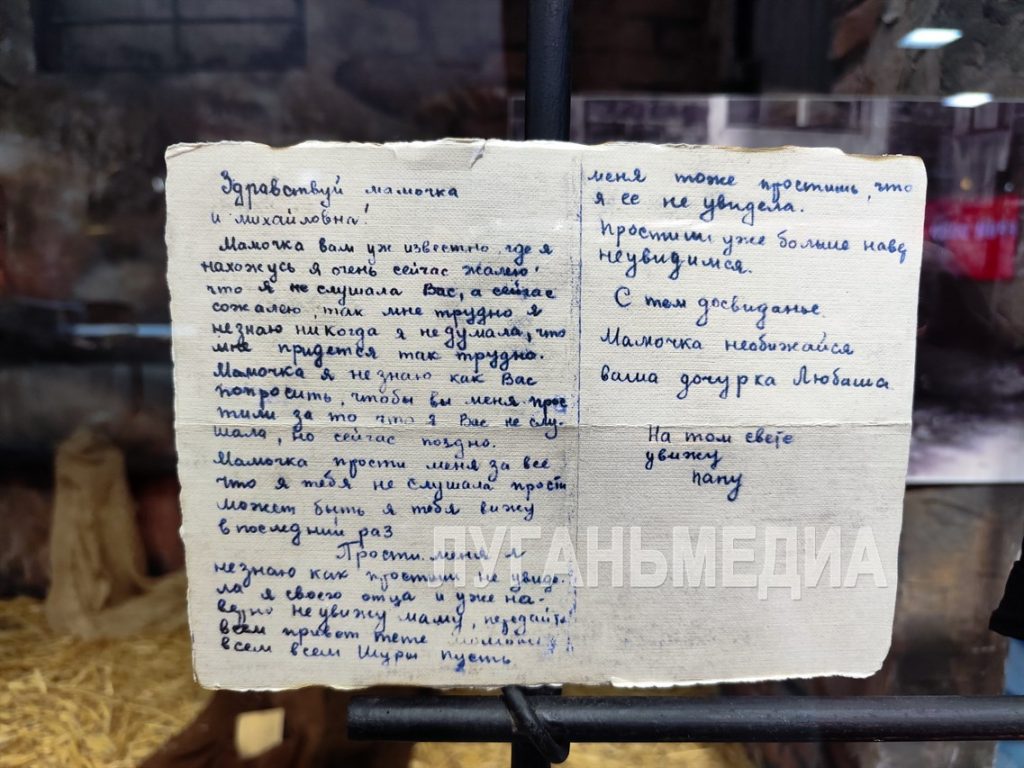 Здравствуй мамочка
и михайловна!
Мамочка вам уж известно, где я
нахожусь я очень сейчас жалею,
что я не слушала Вас, а сейчас
сожалею, так мне трудно я
незнаю никогда я недумала, что
мне придется так трудно.
Мамочка я незнаю как Вас
попросить, чтобы вы меня прос
тили за то что я Вас не слу-
шала, но сейчас поздно.
Мамочка прости меня за все,
что я тебя не слушала прости
может быть я тебя вижу
в последний раз
Прости меня я
незнаю как простиш не увиде-
ла я своего отца и уже на-
верно неувижу маму, передайте
всем привет тете
всем всем Шуры пусть
меня тоже простишь, что
я ее не увидела.
Простиш уже больше навер
неувидимся.
С тем досвиданье.
Мамочка необижайся
ваша дочурка Любаша.
На том свете
увижу
папу
ЛУГАНЬМЕДИА